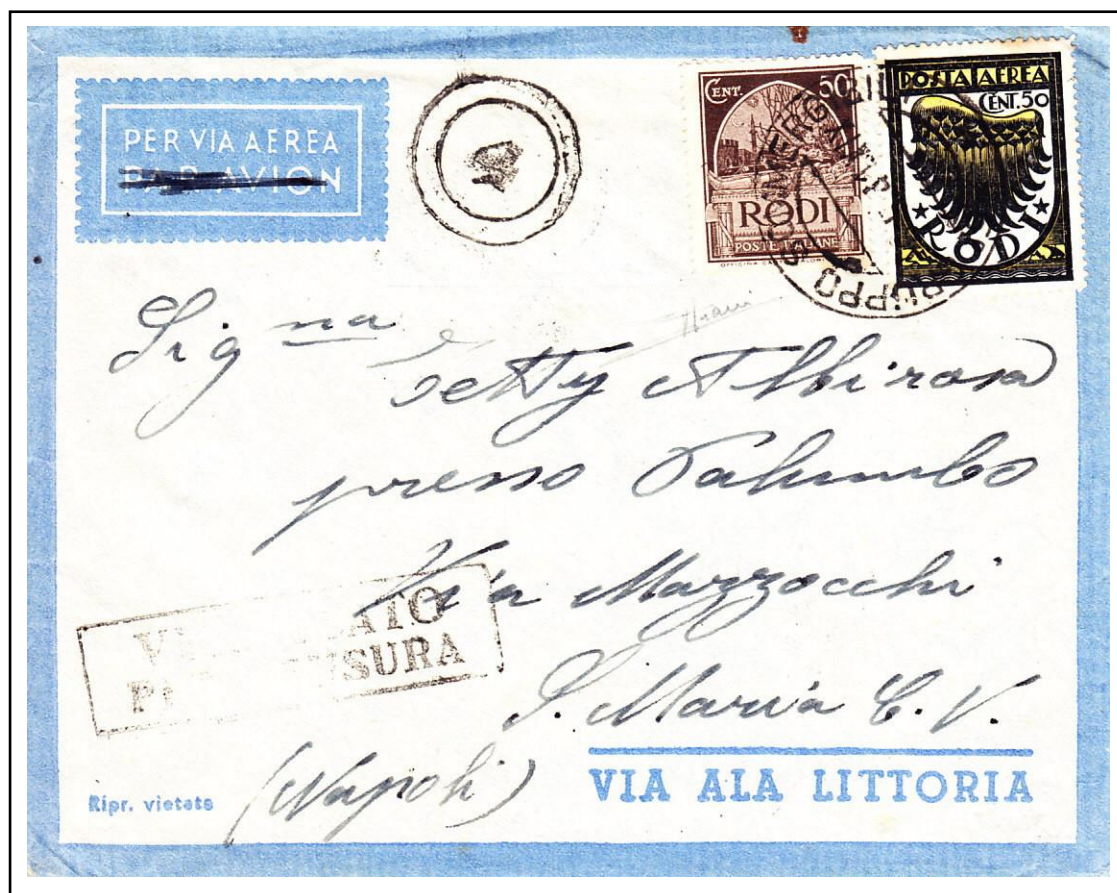 PER VIA AEREA
PAR AVION
CENT. 50
RODI
POSTE ITALIANE
POSTA AEREA
CENT. 50
RODI
Signa
Betty Albirosa
presso Palumbo
Via Mazzocchi
S. Maria C. V.
(Napoli)
VERIFICATO
PER CENSURA
VIA ALA LITTORIA
Ripr. vietata